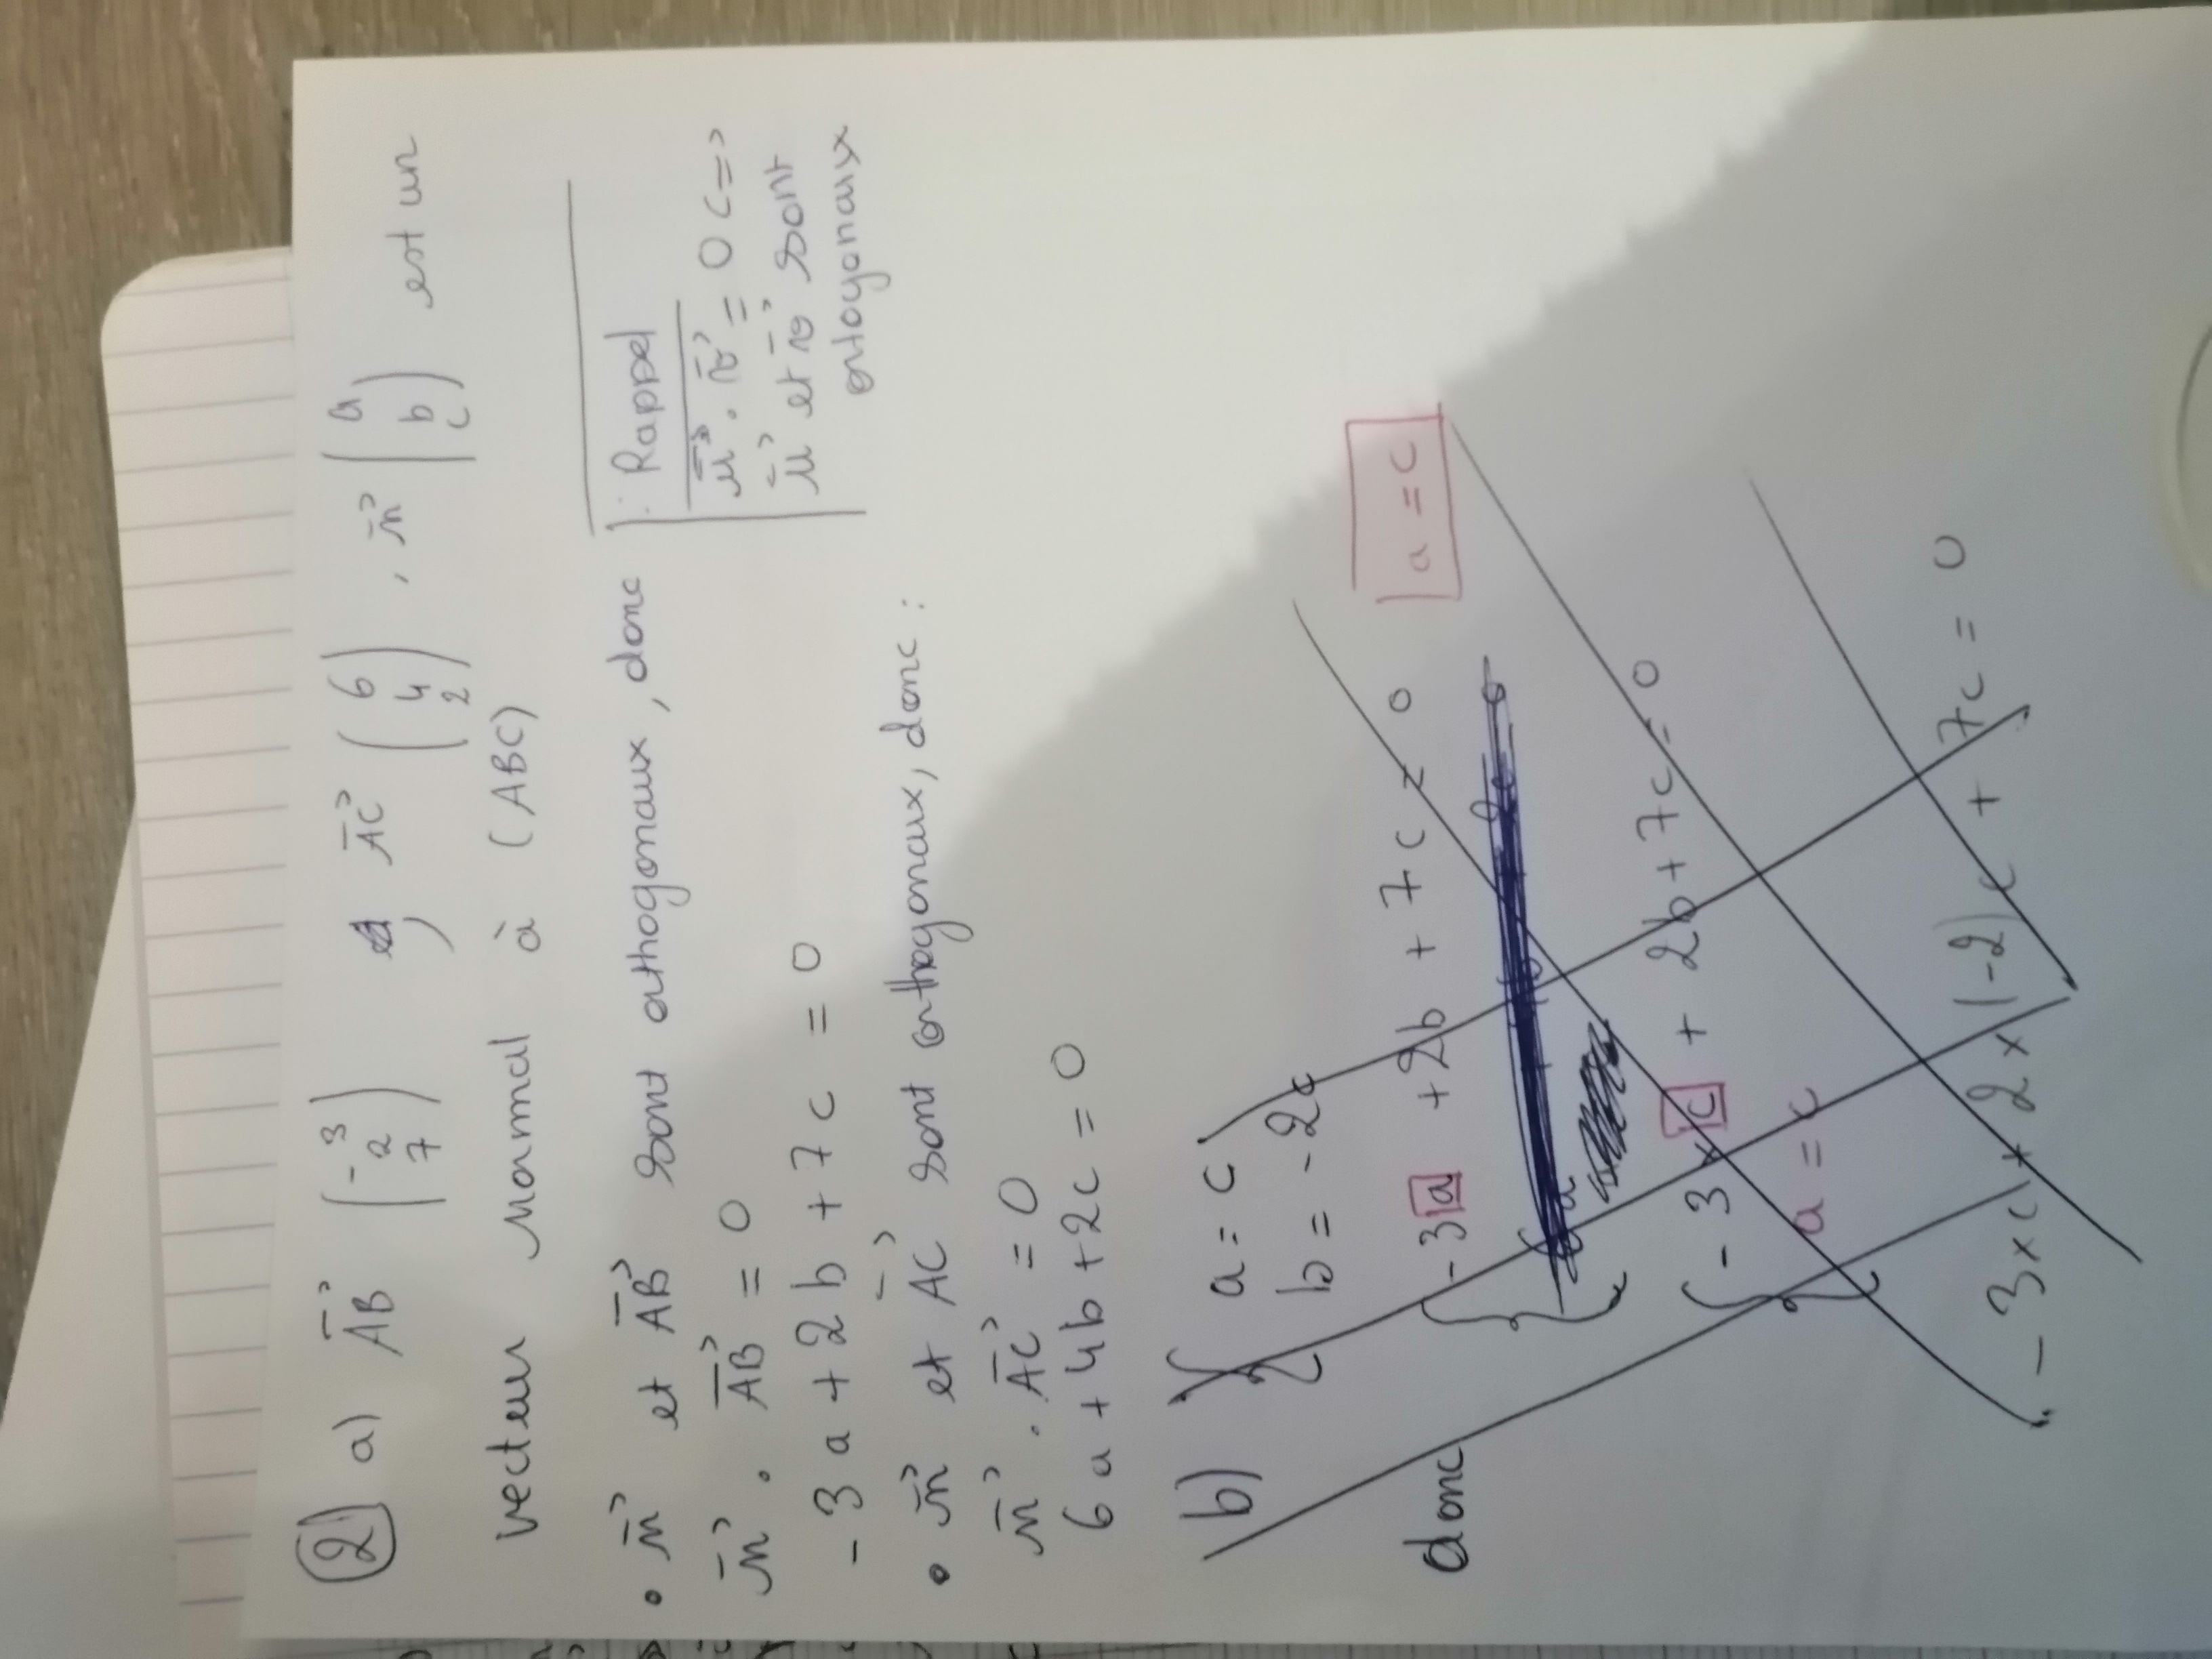 ② a) AB⃗ (-3 2 7) , AC⃗ (6 4 2) , n⃗ (a b c) est un
vecteur normal à (ABC)
• n⃗ et AB⃗ sont orthogonaux, donc
n⃗ . AB⃗ = 0
-3a + 2b + 7c = 0
• n⃗ et AC⃗ sont orthogonaux, donc :
n⃗ . AC⃗ = 0
6a + 4b + 2c = 0
Rappel
u⃗ . v⃗ = 0 <=>
u⃗ et v⃗ sont
ortogonaux
b) { a = c
b = -2c
donc { -3a + 2b + 7c = 0
a = c
{ -3 × c + 2b + 7c = 0
a = c
-3×c + 2×(-2)c + 7c = 0